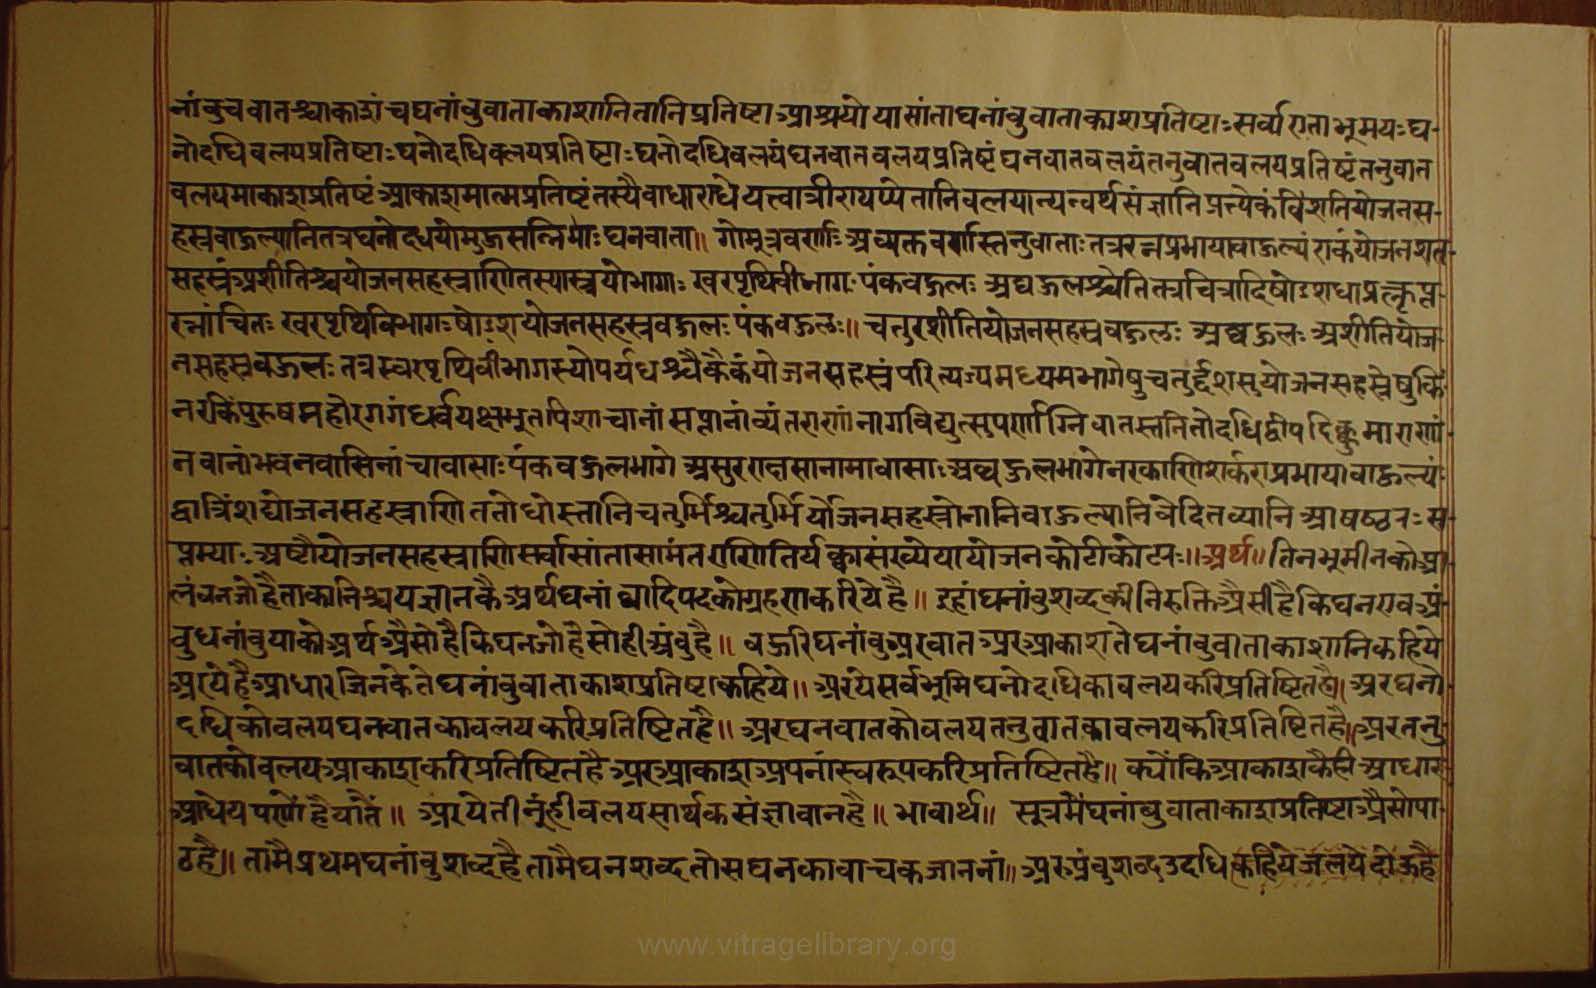 नांबुचवातश्चाकाशंचघनांबुवाताकाशानितानिप्रतिष्टाआश्रयोयासांताघनांबुवाताकाशप्रतिष्टाःसर्व्वाएताभूमयःघ-
नोदधिवलयप्रतिष्टाःघनोदधिवलयप्रतिष्टाःघनोदधिवलयंघनवातवलयप्रतिष्टंघनवातवलयंतनुवातवलयप्रतिष्टंतनुवात
वलयमाकाशप्रतिष्टंआकाशमात्मप्रतिष्टंतस्यैवाधाराधेयत्वात्रीण्यप्येतानिवलयान्यन्वर्थसंज्ञानिप्रत्येकंविंशतियोजनस-
हस्रबाऊल्यानितत्रघनोदधयोमुऊसन्निभाःघनवाता॥ गोमूत्रवर्णाःअव्यक्तवर्णास्तनुवाताःतत्ररत्नप्रभायाबाऊल्यंएकंयोजनशत
सहस्रंअशीतिश्चयोजनसहस्राणितस्यास्त्रयोभागाः खरपृथिवीभागःपंकबऊलः अब्बऊलश्चेतितत्रचित्रादिषोडशधाप्रक्लृप्त-
रत्नांचितः खरपृथिविभागःषोडशयोजनसहस्रबऊलःपंकबऊलः॥ चतुरशीतियोजनसहस्रबऊलः अब्बऊलः अशीतियोज-
नसहस्रबऊलः तत्रखरपृथिवीभागस्योपर्यधश्चैकैकंयोजनसहस्रंपरित्यज्यमध्यमभागेषुचतुर्द्दशसुयोजनसहस्रेषुकिं
नरकिंपुरुषमहोरगगंधर्वयक्षभूतपिशाचानांसप्तानांव्यंतराणांनागविद्युत्सुपर्णाग्निवातस्तनितोदधिद्वीपदिक्कुमाराणां
नवानांभवनवासिनांचावासाःपंकबऊलभागे असुरराक्षसानामावासाःअब्बऊलभागेनरकाणिशर्कराप्रभायाबाऊल्यं
द्वात्रिंशद्योजनसहस्राणिततोधोस्तानिचतुर्भिश्चतुर्भिर्योजनसहस्रोनानिबाऊल्यानिवेदितव्यानि आषष्ठ्याःस-
प्तम्याःअष्टौयोजनसहस्राणिसर्वासांतासामंतराणितिर्यक्चासंख्येयायोजनकोटीकोट्यः॥अर्थ॥ तिनभूमीनकोआ-
लंबनजोहैताकानिश्चयज्ञानकैअर्थघनांब्वादिपदकोग्रहणकरियेहै॥ इहांघनांबुशब्दकीनिरुक्तिऐसीहैकिघनएवअं-
बुघनांबुयाकोअर्थऐसोहैकिघनजोहैसोहीअंबुहै॥ बऊरिघनांबुअरवातअरआकाशतेघनांबुवाताकाशानिकहिये
अरयेहैआधारजिनकेतेघनांबुवाताकाशप्रतिष्टाकहिये॥ अरयेसर्वभूमिघनोदधिकावलयकरिप्रतिष्टितहै॥ अरघनो
दधिकोवलयघनवातकावलयकरिप्रतिष्टितहै॥ अरघनवातकोवलयतनुवातकावलयकरिप्रतिष्टितहै॥अरतनु
वातकोवलयआकाशकरिप्रतिष्टितहै अरआकाशअपनांस्वरूपकरिप्रतिष्टितहै॥ क्योंकिआकाशकैहीआधार-
आधेयपणोंहैयातैं॥ अरयेतीनूंहीवलयसार्थकसंज्ञावानहै॥ भावार्थ॥ सूत्रमेंघनांबुवाताकाशप्रतिष्टाऐसोपा-
ठहै॥ तामैप्रथमघनांबुशब्दहैतामैघनशब्दतोसघनकावाचकजाननां॥ अरअंबुशब्दउदधिकहियेजलयेदोऊहै
www.vitragelibrary.org